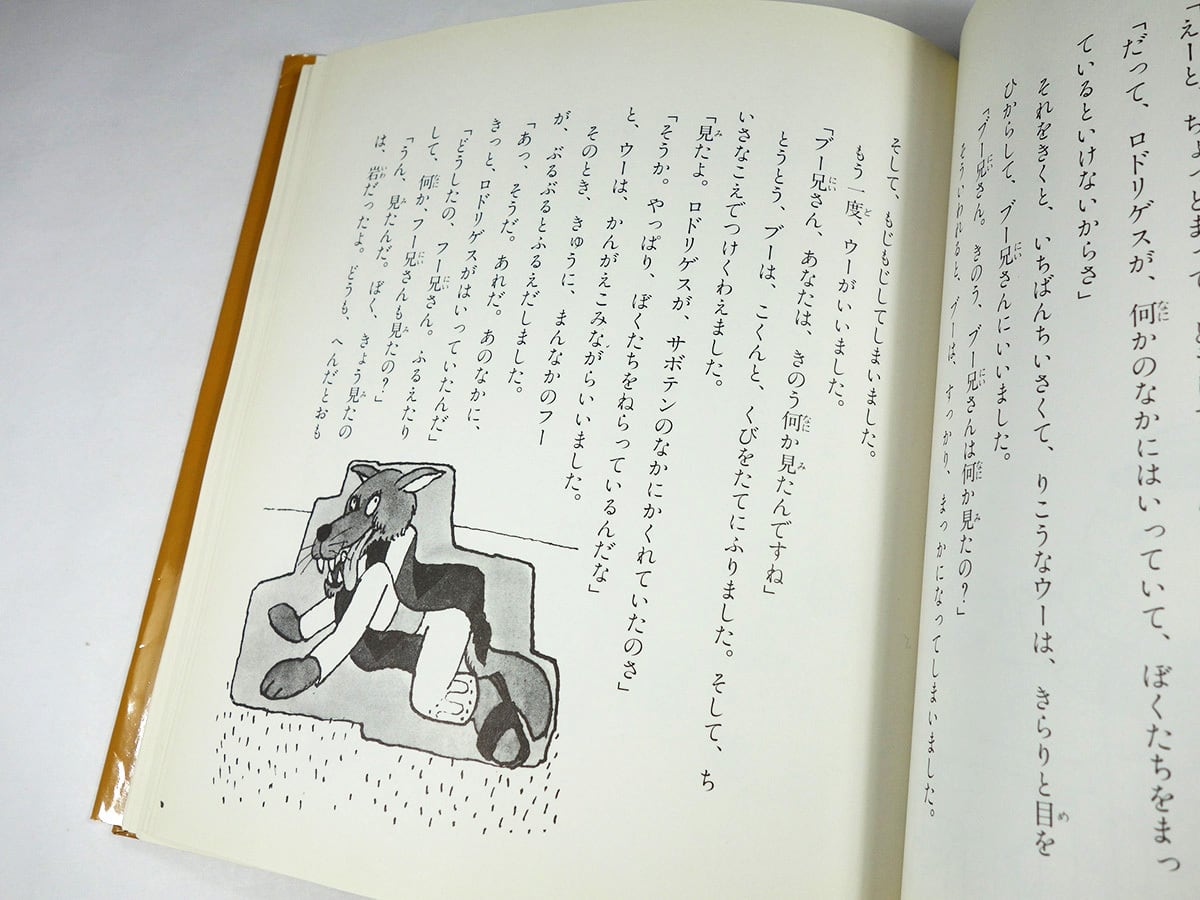 「えーと、ちょっとまって
「だって、ロドリゲスが、何かのなかにはいっていて、ぼくたちをまっ
ているといけないからさ」
それをきくと、いちばんちいさくて、りこうなウーは、きらりと目を
ひからして、ブー兄さんにいいました。
「ブー兄さん。きのう、ブー兄さんは何か見たの?」
そういわれると、ブーは、すっかり、まっかになってしまいました。
そして、もじもじしてしまいました。
もう一度、ウーがいいました。
「ブー兄さん、あなたは、きのう何か見たんですね」
とうとう、ブーは、こくんと、くびをたてにふりました。そして、ち
いさなこえでつけくわえました。
「見たよ。ロドリゲスが、サボテンのなかにかくれていたのさ」
「そうか。やっぱり、ぼくたちをねらっているんだな」
と、ウーは、かんがえこみながらいいました。
そのとき、きゅうに、まんなかのフー
が、ぶるぶるとふるえだしました。
「あっ、そうだ。あれだ。あのなかに、
きっと、ロドリゲスがはいっていたんだ」
「どうしたの、フー兄さん。ふるえたり
して、何か、フー兄さんも見たの?」
「うん、見たんだ。ぼく、きょう見たの
は、岩だったよ。どうも、へんだとおも